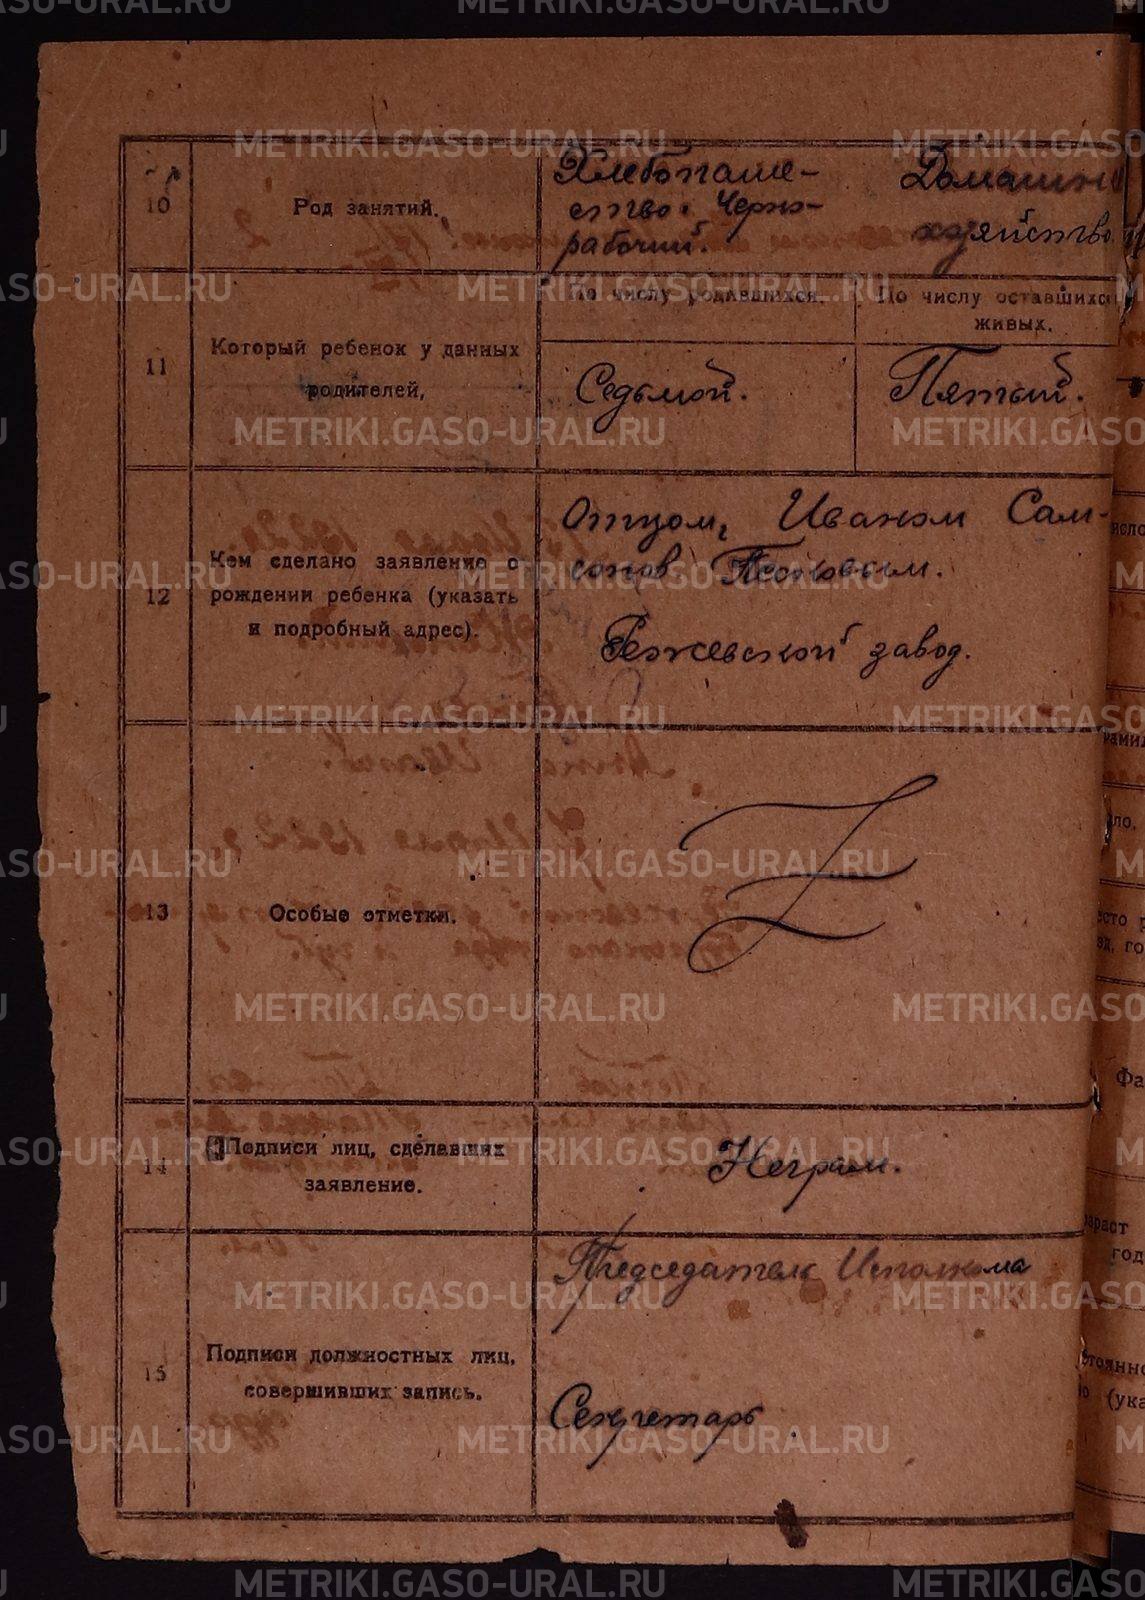 METRIKI.GASO-URAL.RU
10
Род занятий.
Хлебопаше-
ство. Черно-
рабочий.
Домашн
хозяйство
11
Который ребенок у данных
родителей,
По числу родившихся.
По числу оставшихся
живых.
Седьмой.
Пятый.
12
Кем сделано заявление о
рождении ребенка (указать
и подробный адрес).
Отцом, Иваном Сам-
сонов
Режевской завод.
13
Особые отметки.
Z
14
Подписи лиц, сделавших
заявление.
Неграм.
15
Подписи должностных лиц,
совершивших запись.
Председатель Исполкома
Секретарь